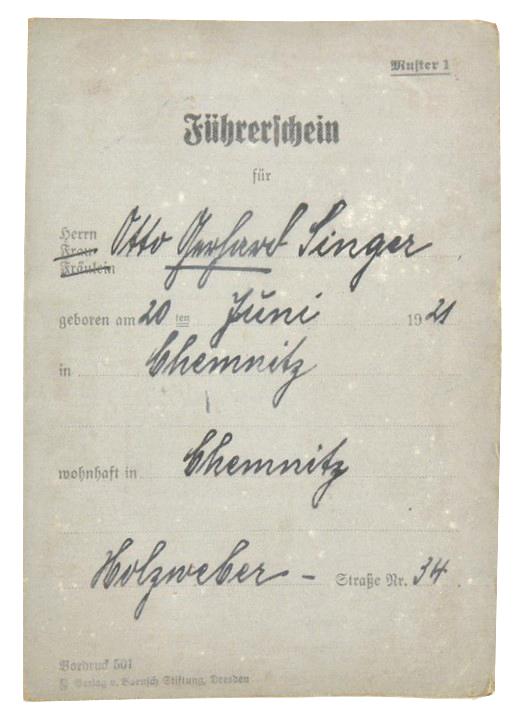 Muster 1
Führerschein
für
Herrn
Frau
Fräulein
Otto Gerhard Singer
geboren am 20ten Juni 1921
in Chemnitz
wohnhaft in Chemnitz
Holzweber - Straße Nr. 34
Vordruck 501
Verlag v. Baensch Stiftung, Dresden